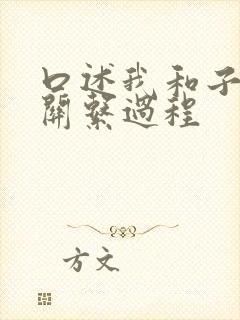 口述我和子
關繫過程
方文